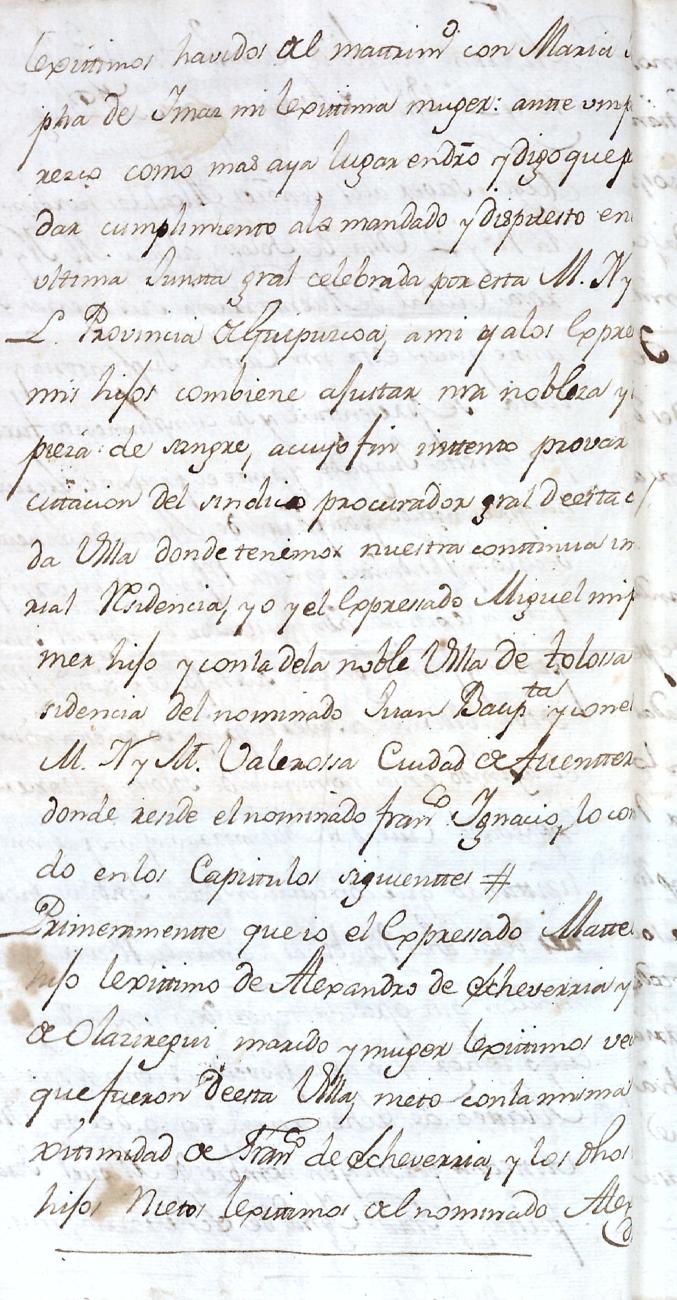 lexittimos havidos del mattrimo con Maria J
pha de Ymaz mi lexittima muger: antte vmp
rezco como mas aya lugar en dro y digo que p
dar cumplimiento alo mandado y dispuesto en
ultima Juntta gral celebrada por esta M. N y
L. Provincia de Guipuzcoa, a mi y alos Expre
mis hijos combiene ajusttar nra nobleza y
pieza de sangre, a cuyo fin inttento provar
cittacion del sindico procurador gral de esta
da Villa donde tenemos nuestra conttinua in
rial Residencia, yo y el Expressado Miguel mi p
mer hijo y con la dela noble Villa de tolossa
sidencia del nominado Juan Baupta y con el
M. N y M. Valerossa Ciudad de fuentter
donde reside el nominado franco Ygnacio, lo con
do en los Capittulos siguienttes #
Primeramentte que io el Expressado Matte
hijo lexittimo de Alexandro de Echeverria y
de Olaziregui marido y muger lexittimos ve
que fueron de esta Villa, nieto con la misma
xitimidad de Franco de Echeverria, y los dhos
hijos Nietos lexittimos del nominado Alex